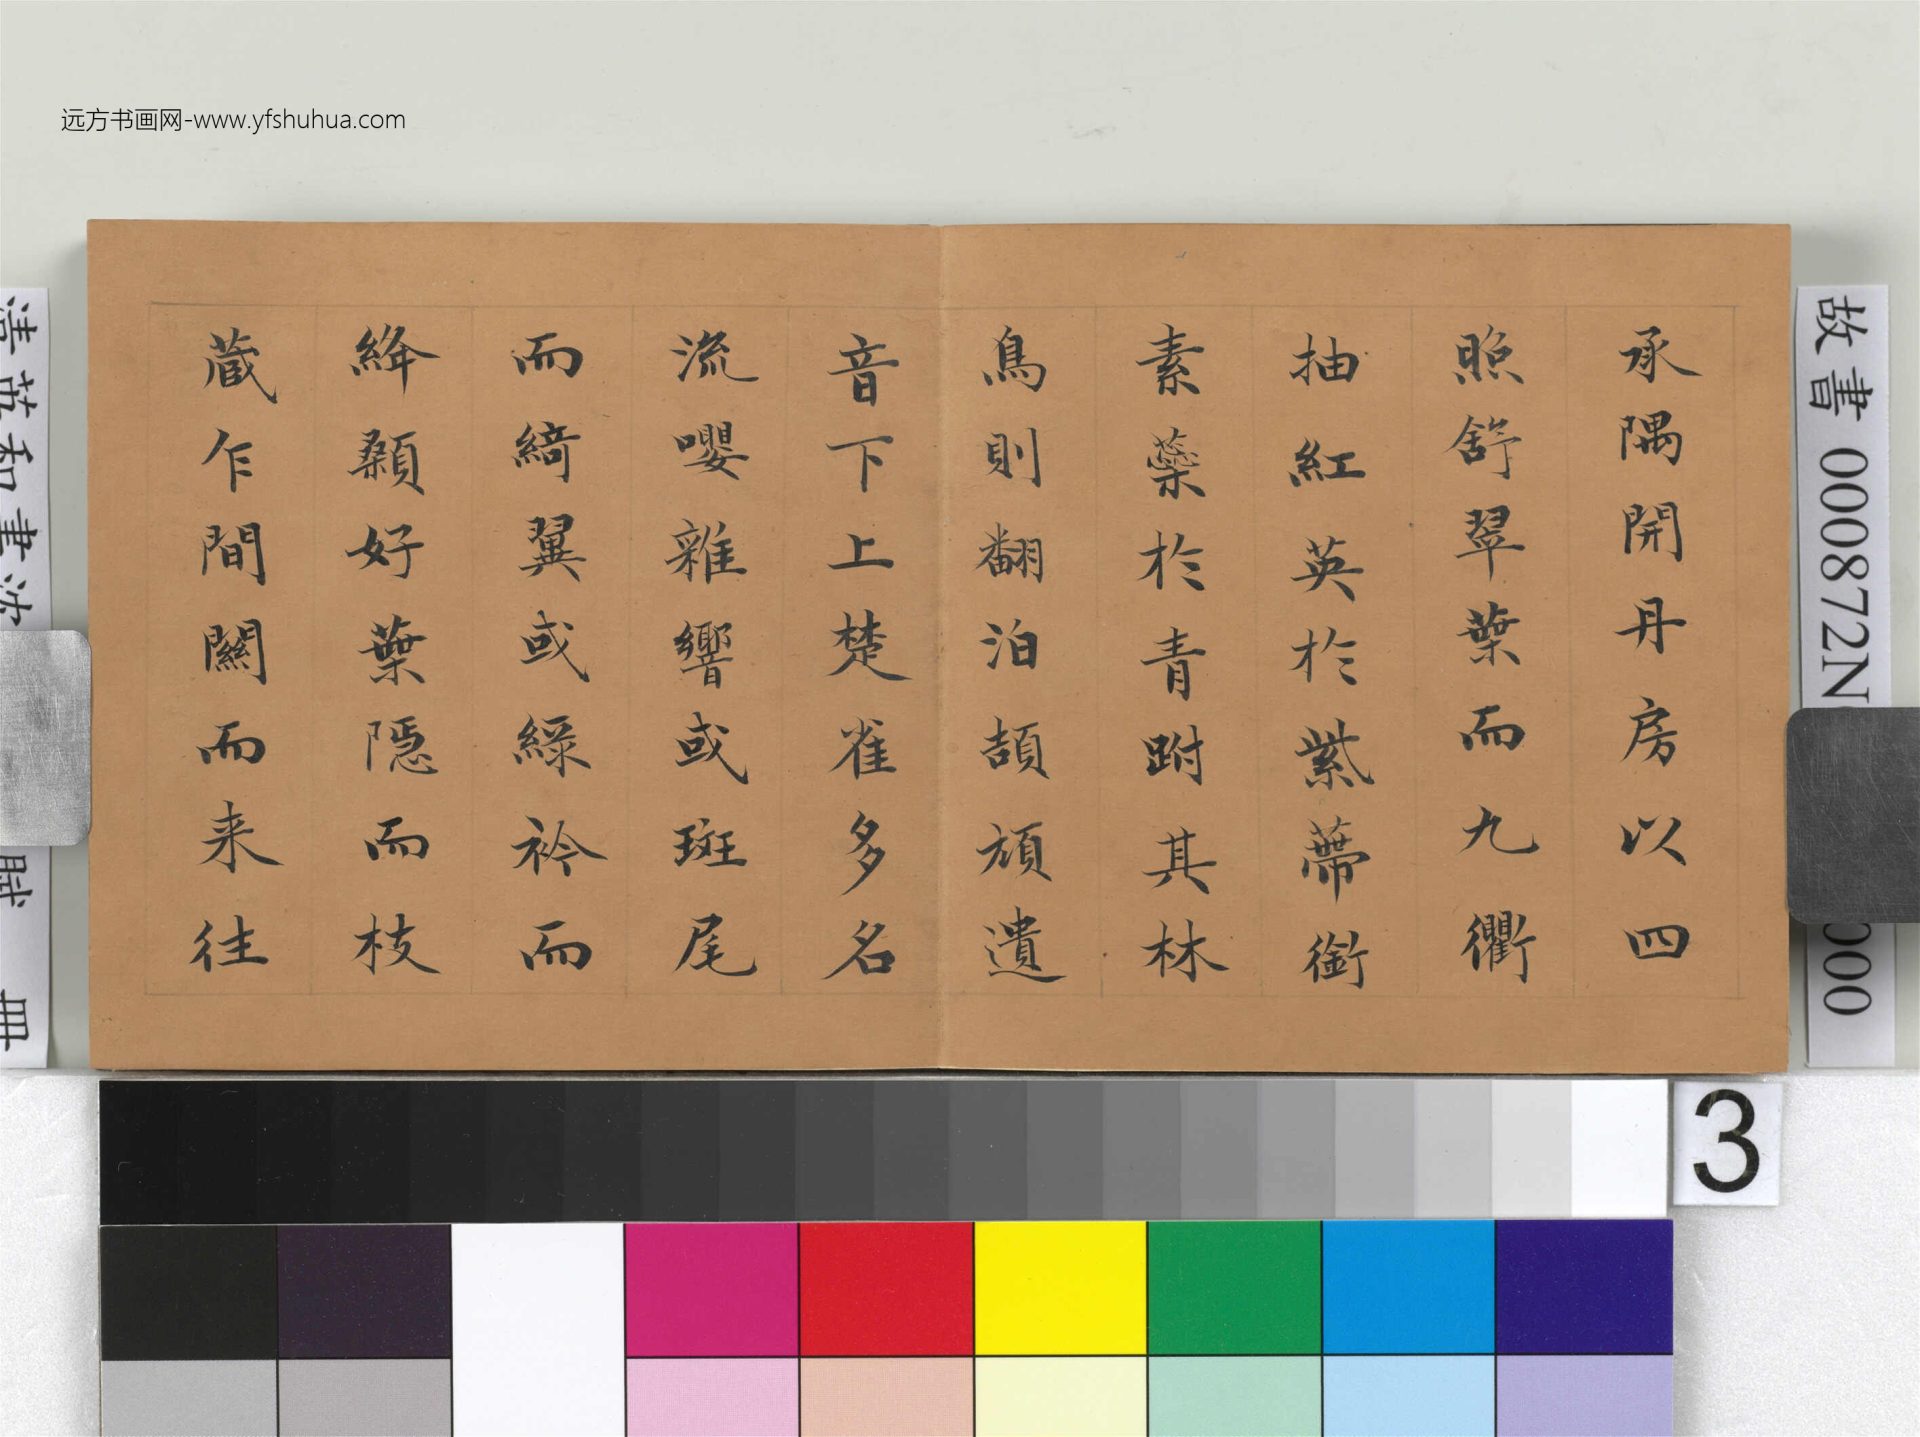 远方书画网-www.yfshuhua.com
承隅開丹房以四
照舒翠葉而九衢
抽紅英於紫蔕銜
素蘂於青跗其林
鳥則翻泊頡頏遺
音下上楚雀多名
流嚶雜響或斑尾
而綺翼或綠衿而
絳顙好葉隱而枝
蔵乍間關而来往
故書 000872N 000
清英和書沈 賦 冊
3